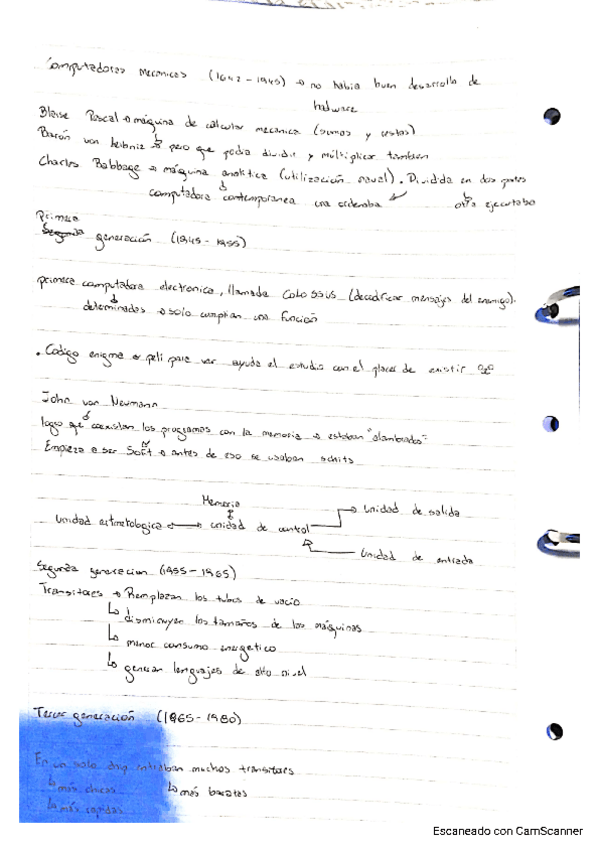 Computadoras mecanicas (1642-1945) → no habia buen desarrollo de
hadware
Blaise Pascal → máquina de calcular mecanica (sumas y restas)
Barón von Leibniz → pero que podia dividir y múltiplicar tambien
Charles Babbage → máquina analitica (utilización naval). Dividida en dos partes
computadora contemporanea una ordenaba otra ejecutaba
Primera
generación (1945-1955)
primera computadora electronica, llamada COLOSSUS (decodificar mensajes del enemigo).
determinados → solo cumplian una función
• Codigo enigma → peli para ver ayuda el estudio con el placer de existir
John von Neumann
logo que coexistan los programas con la memoria → estaban "alambrados"
Empieza a ser Soft → antes de eso se usaban
Memoria
Unidad aritmetologica ↔ unidad de control → Unidad de salida
Unidad de entrada
Segunda generacion (1955-1965)
Transitores → Remplazan los tubos de vacio
↳ disminuyen los tamaños de las máquinas
↳ menor consumo energetico
↳ generan lenguajes de alto nivel
Tercer generación (1965-1980)
En un solo chip entraban muchos transitores
↳ más chicas ↳ más baratas
↳ más rapidas
Escaneado con CamScanner